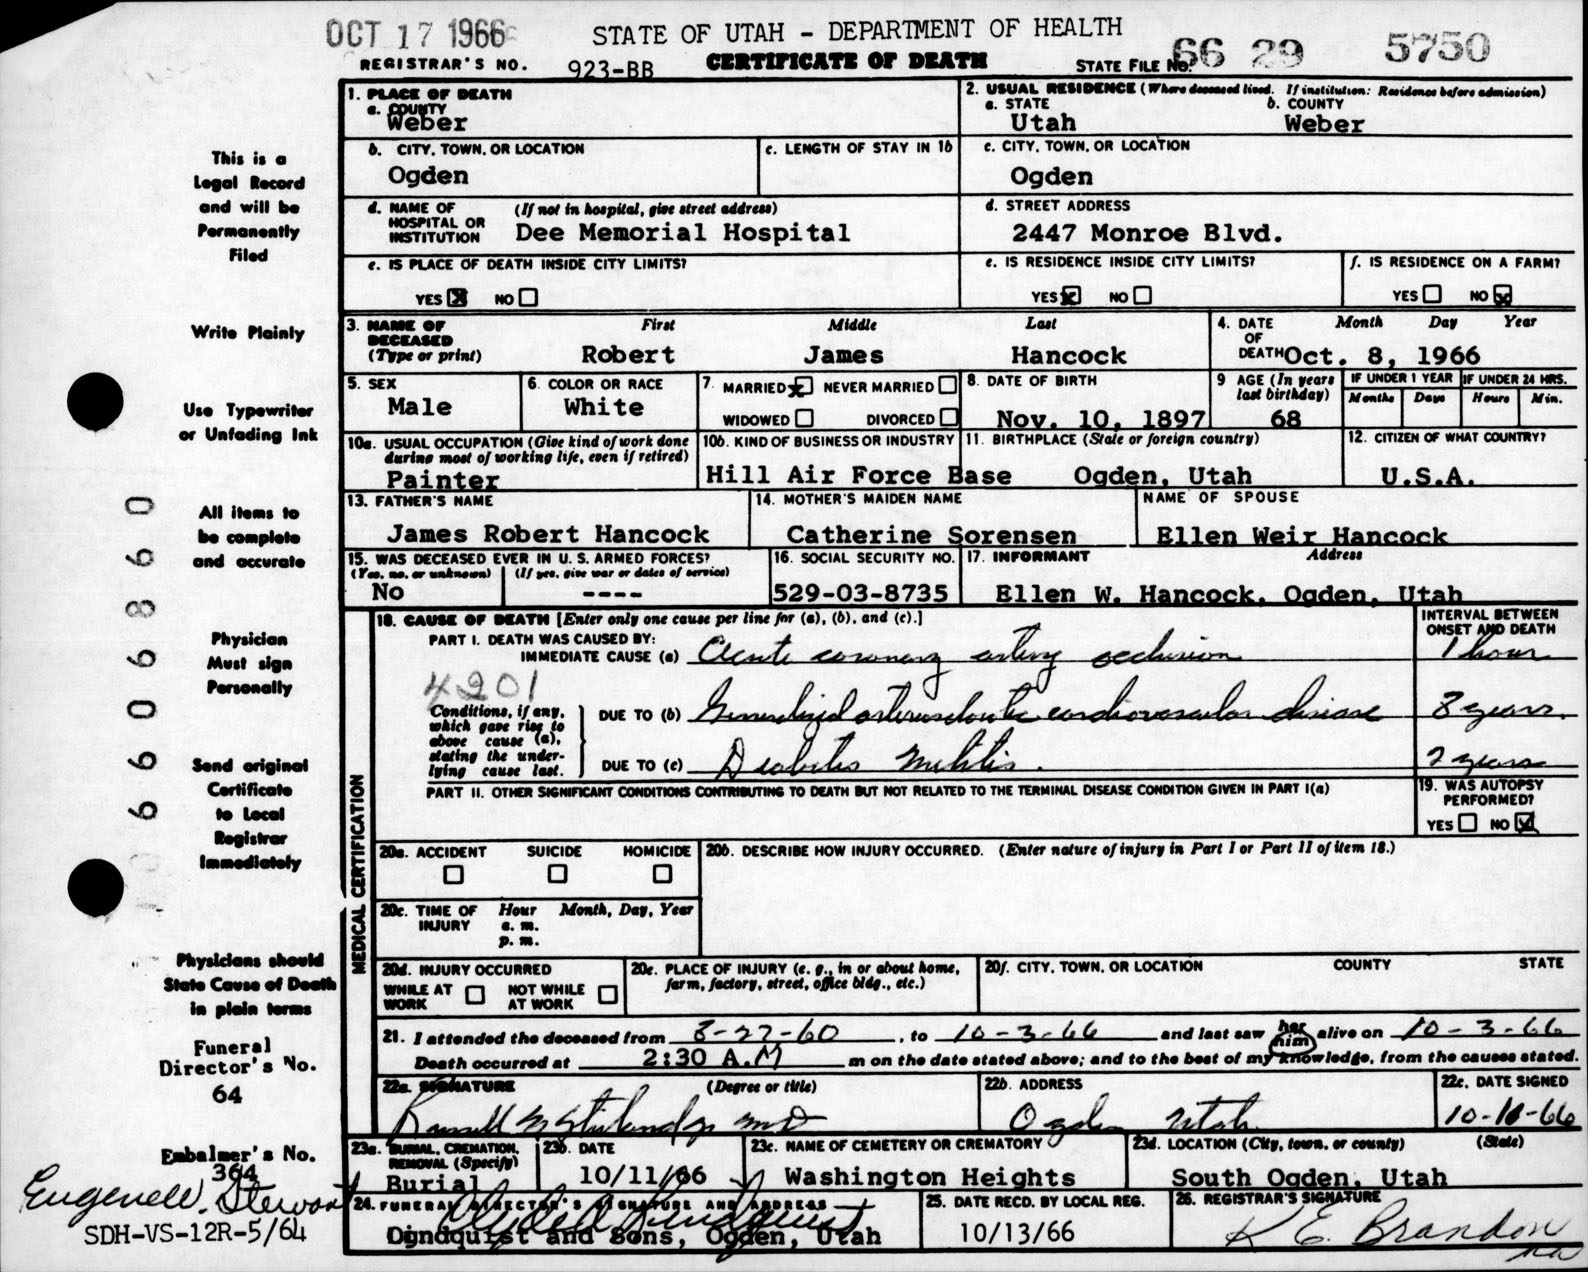 OCT 17 1966
STATE OF UTAH - DEPARTMENT OF HEALTH
REGISTRAR'S NO. 923-BB
CERTIFICATE OF DEATH
STATE FILE NO. 66 29 5750
This is a
Legal Record
and will be
Permanently
Filed
Write Plainly
Use Typewriter
or Unfading Ink
All items to
be complete
and accurate
Physician
Must sign
Personally
Send original
Certificate
to Local
Registrar
Immediately
Physicians should
State Cause of Death
in plain terms
Funeral
Director's No.
64
Embalmer's No.
364
Eugene W. Stewart
SDH-VS-12R-5/64
6 6 9 0 6 8 9 0
1. PLACE OF DEATH
a. COUNTY
Weber
2. USUAL RESIDENCE (Where deceased lived. If institution: Residence before admission)
a. STATE b. COUNTY
Utah Weber
b. CITY, TOWN, OR LOCATION
Ogden
c. LENGTH OF STAY IN 1b
c. CITY, TOWN, OR LOCATION
Ogden
d. NAME OF HOSPITAL OR INSTITUTION (If not in hospital, give street address)
Dee Memorial Hospital
d. STREET ADDRESS
2447 Monroe Blvd.
e. IS PLACE OF DEATH INSIDE CITY LIMITS?
YES X NO
e. IS RESIDENCE INSIDE CITY LIMITS?
YES X NO
f. IS RESIDENCE ON A FARM?
YES NO X
3. NAME OF DECEASED (Type or print)
First Middle Last
Robert James Hancock
4. DATE OF DEATH Month Day Year
Oct. 8, 1966
5. SEX
Male
6. COLOR OR RACE
White
7. MARRIED X NEVER MARRIED
WIDOWED DIVORCED
8. DATE OF BIRTH
Nov. 10, 1897
9 AGE (In years last birthday)
68
IF UNDER 1 YEAR
Months Days
IF UNDER 24 HRS.
Hours Min.
10a. USUAL OCCUPATION (Give kind of work done during most of working life, even if retired)
Painter
10b. KIND OF BUSINESS OR INDUSTRY
Hill Air Force Base
11. BIRTHPLACE (State or foreign country)
Ogden, Utah
12. CITIZEN OF WHAT COUNTRY?
U.S.A.
13. FATHER'S NAME
James Robert Hancock
14. MOTHER'S MAIDEN NAME
Catherine Sorensen
NAME OF SPOUSE
Ellen Weir Hancock
15. WAS DECEASED EVER IN U. S. ARMED FORCES?
(Yes, no, or unknown) (If yes, give war or dates of service)
No ----
16. SOCIAL SECURITY NO.
529-03-8735
17. INFORMANT Address
Ellen W. Hancock, Ogden, Utah
MEDICAL CERTIFICATION
18. CAUSE OF DEATH [Enter only one cause per line for (a), (b), and (c).]
INTERVAL BETWEEN ONSET AND DEATH
PART I. DEATH WAS CAUSED BY:
IMMEDIATE CAUSE (a) Acute coronary artery occlusion 1 hour
4201
Conditions, if any, which gave rise to above cause (a), stating the underlying cause last.
DUE TO (b) Generalized arteriosclerotic cardiovascular disease 8 years
DUE TO (c) Diabetes Mellitis. 2 years
PART II. OTHER SIGNIFICANT CONDITIONS CONTRIBUTING TO DEATH BUT NOT RELATED TO THE TERMINAL DISEASE CONDITION GIVEN IN PART I(a)
19. WAS AUTOPSY PERFORMED?
YES NO X
20a. ACCIDENT SUICIDE HOMICIDE
20b. DESCRIBE HOW INJURY OCCURRED. (Enter nature of injury in Part I or Part II of item 18.)
20c. TIME OF INJURY Hour Month, Day, Year
a. m.
p. m.
20d. INJURY OCCURRED
WHILE AT WORK NOT WHILE AT WORK
20e. PLACE OF INJURY (e. g., in or about home, farm, factory, street, office bldg., etc.)
20f. CITY, TOWN, OR LOCATION COUNTY STATE
21. I attended the deceased from 8-27-60, to 10-3-66 and last saw her him alive on 10-3-66
Death occurred at 2:30 A.M m on the date stated above; and to the best of my knowledge, from the causes stated.
22a. SIGNATURE (Degree or title)
MD
22b. ADDRESS
Ogden Utah
22c. DATE SIGNED
10-10-66
23a. BURIAL, CREMATION, REMOVAL (Specify)
Burial
23b. DATE
10/11/66
23c. NAME OF CEMETERY OR CREMATORY
Washington Heights
23d. LOCATION (City, town, or county) (State)
South Ogden, Utah
24. FUNERAL DIRECTOR'S SIGNATURE AND ADDRESS
and Sons, Ogden, Utah
25. DATE RECD. BY LOCAL REG.
10/13/66
26. REGISTRAR'S SIGNATURE
K E. Brandon